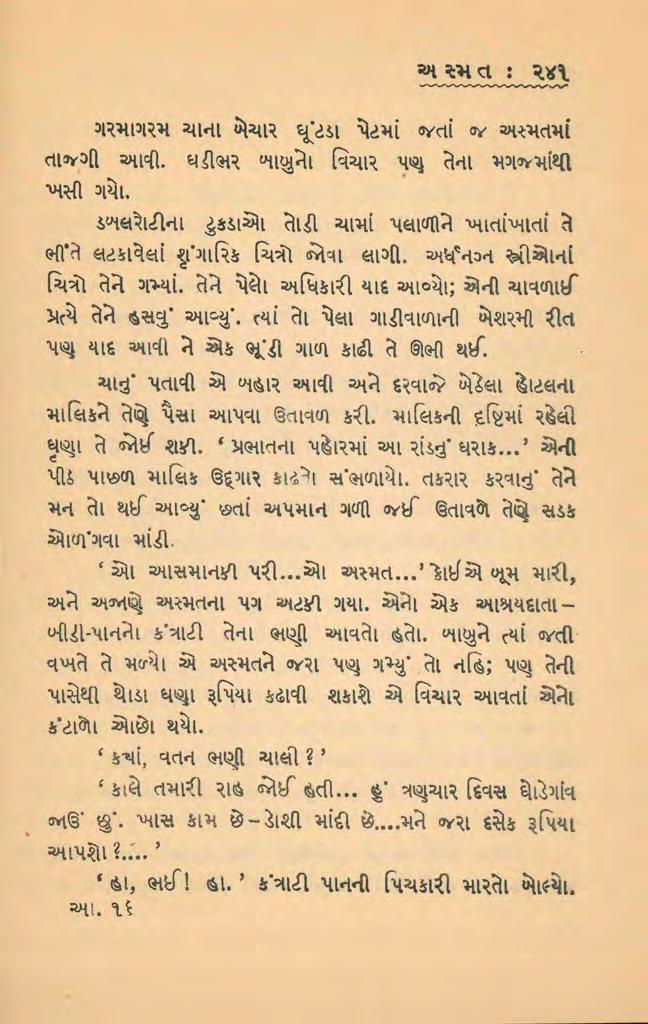 અસ્મત : ૨૪૧
ગરમાગરમ ચાના બેચાર ઘૂંટડા પેટમાં જતાં જ અસ્મતમાં
તાજગી આવી. ઘડીભર બાબુનો વિચાર પણ તેના મગજમાંથી
ખસી ગયો.
ડબલરોટીના ટુકડાઓ તોડી ચામાં પલાળીને ખાતાંખાતાં તે
ભીંતે લટકાવેલાં શૃંગારિક ચિત્રો જોવા લાગી. અર્ધનગ્ન સ્ત્રીઓનાં
ચિત્રો તેને ગમ્યાં. તેને પેલો અધિકારી યાદ આવ્યો; એની ચાવળાઈ
પ્રત્યે તેને હસવું આવ્યું. ત્યાં તો પેલા ગાડીવાળાની બેશરમી રીત
પણ યાદ આવી ને એક ભૂંડી ગાળ કાઢી તે ઊભી થઈ.
ચાનું પતાવી એ બહાર આવી અને દરવાજે બેઠેલા હોટલના
માલિકને તેણે પૈસા આપવા ઉતાવળ કરી. માલિકની દૃષ્ટિમાં રહેલી
ઘૃણા તે જોઈ શકી. ‘ પ્રભાતના પહોરમાં આ રાંડનું ઘરાક...’ એની
પીઠ પાછળ માલિક ઉદ્ગાર કાઢતો સંભળાયો. તકરાર કરવાનું તેને
મન તો થઈ આવ્યું છતાં અપમાન ગળી જઈ ઉતાવળે તેણે સડક
ઓળંગવા માંડી.
‘ ઓ આસમાનકી પરી...ઓ અસ્મત...’ કોઈએ બૂમ મારી,
અને અજાણે અસ્મતના પગ અટકી ગયા. એનો એક આશ્રયદાતા –
બીડી-પાનનો કંત્રાટી તેના ભણી આવતો હતો. બાબુને ત્યાં જતી
વખતે તે મળ્યો એ અસ્મતને જરા પણ ગમ્યું તો નહિ; પણ તેની
પાસેથી થોડા ઘણા રૂપિયા કઢાવી શકાશે એ વિચાર આવતાં એનો
કંટાળો ઓછો થયો.
‘ ક્યાં, વતન ભણી ચાલી ? ’
‘ કાલે તમારી રાહ જોઈ હતી... હું ત્રણચાર દિવસ ઘોડેગાંવ
જાઉં છું. ખાસ કામ છે – ડોશી માંદી છે....મને જરા દસેક રૂપિયા
આપશો ?.... ’
‘ હા, ભઈ ! હા. ’ કંત્રાટી પાનની પિચકારી મારતો બોલ્યો.
આ. ૧૬